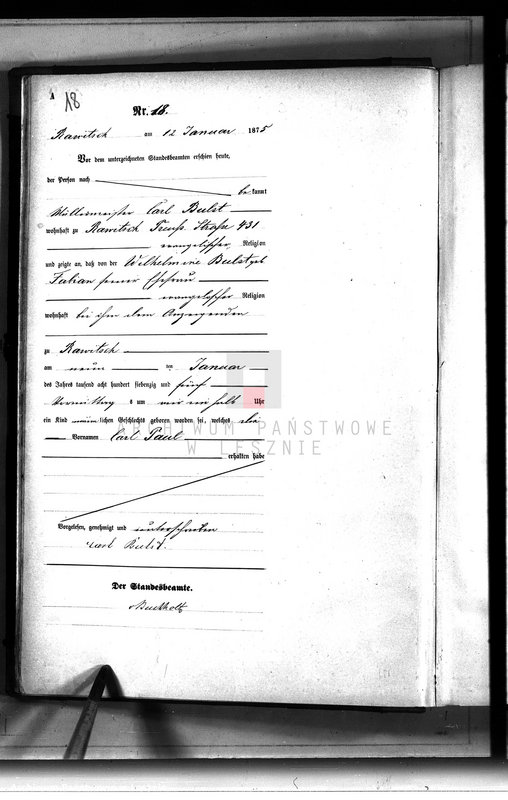 A 18
Nr. 18.
Rawitsch am 12 Januar 1875
Vor dem unterzeichneten Standesbeamten erschien heute,
der Person nach
bekannt
Müllermeister Carl Beelst
wohnhaft zu Rawitsch Straße 431
evangelischer Religion
und zeigte an, daß von der Wilhelmine Beelst geb
Fabian seiner Ehefrau
evangelischer Religion
wohnhaft bei ihm dem Anzeigenden
zu Rawitsch
am neun ten Januar
des Jahres tausend acht hundert siebenzig und fünf
Vormittag s um ein halb Uhr
ein Kind männlichen Geschlechts geboren worden sei, welches die
Vornamen Carl Paul
erhalten habe
ARCHIWUM PAŃSTWOWE
W LESZNIE
Vorgelesen, genehmigt und unterschrieben
Carl Beelst.
Der Standesbeamte.